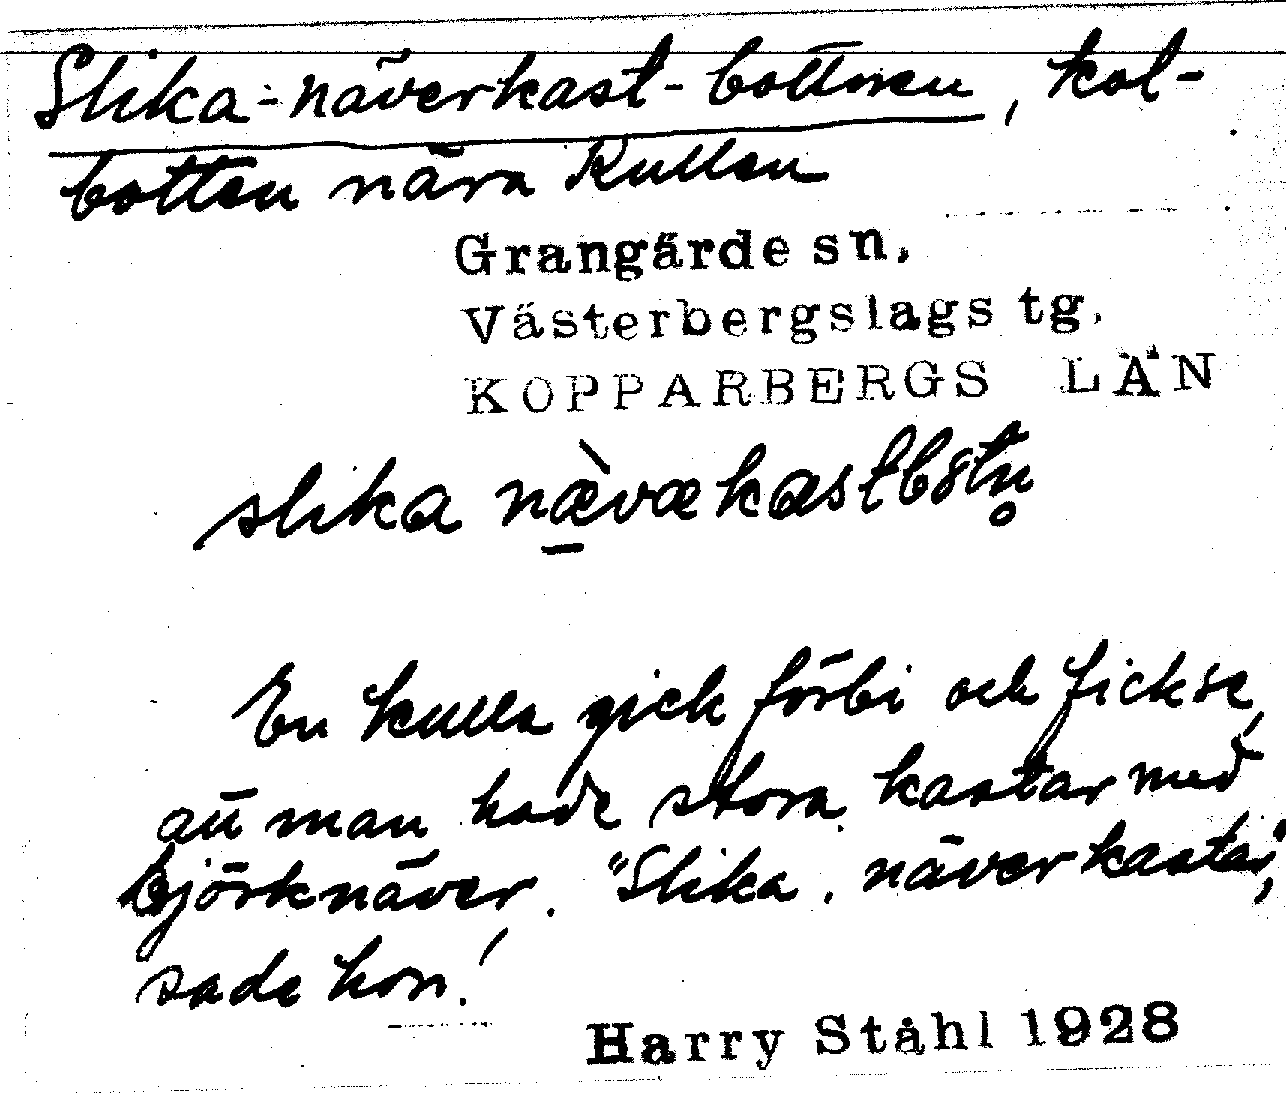 Slika-näverkast-bottnen, kol-
botten nära Kullen
Grangärde sn,
Västerbergslags tg,
KOPPARBERGS LÄN
slika
En kulla gick förbi och fick se,
att man hade stora kastar med
björknäver. "Slika näverkastar",
sade hon!
Harry Ståhl 1928